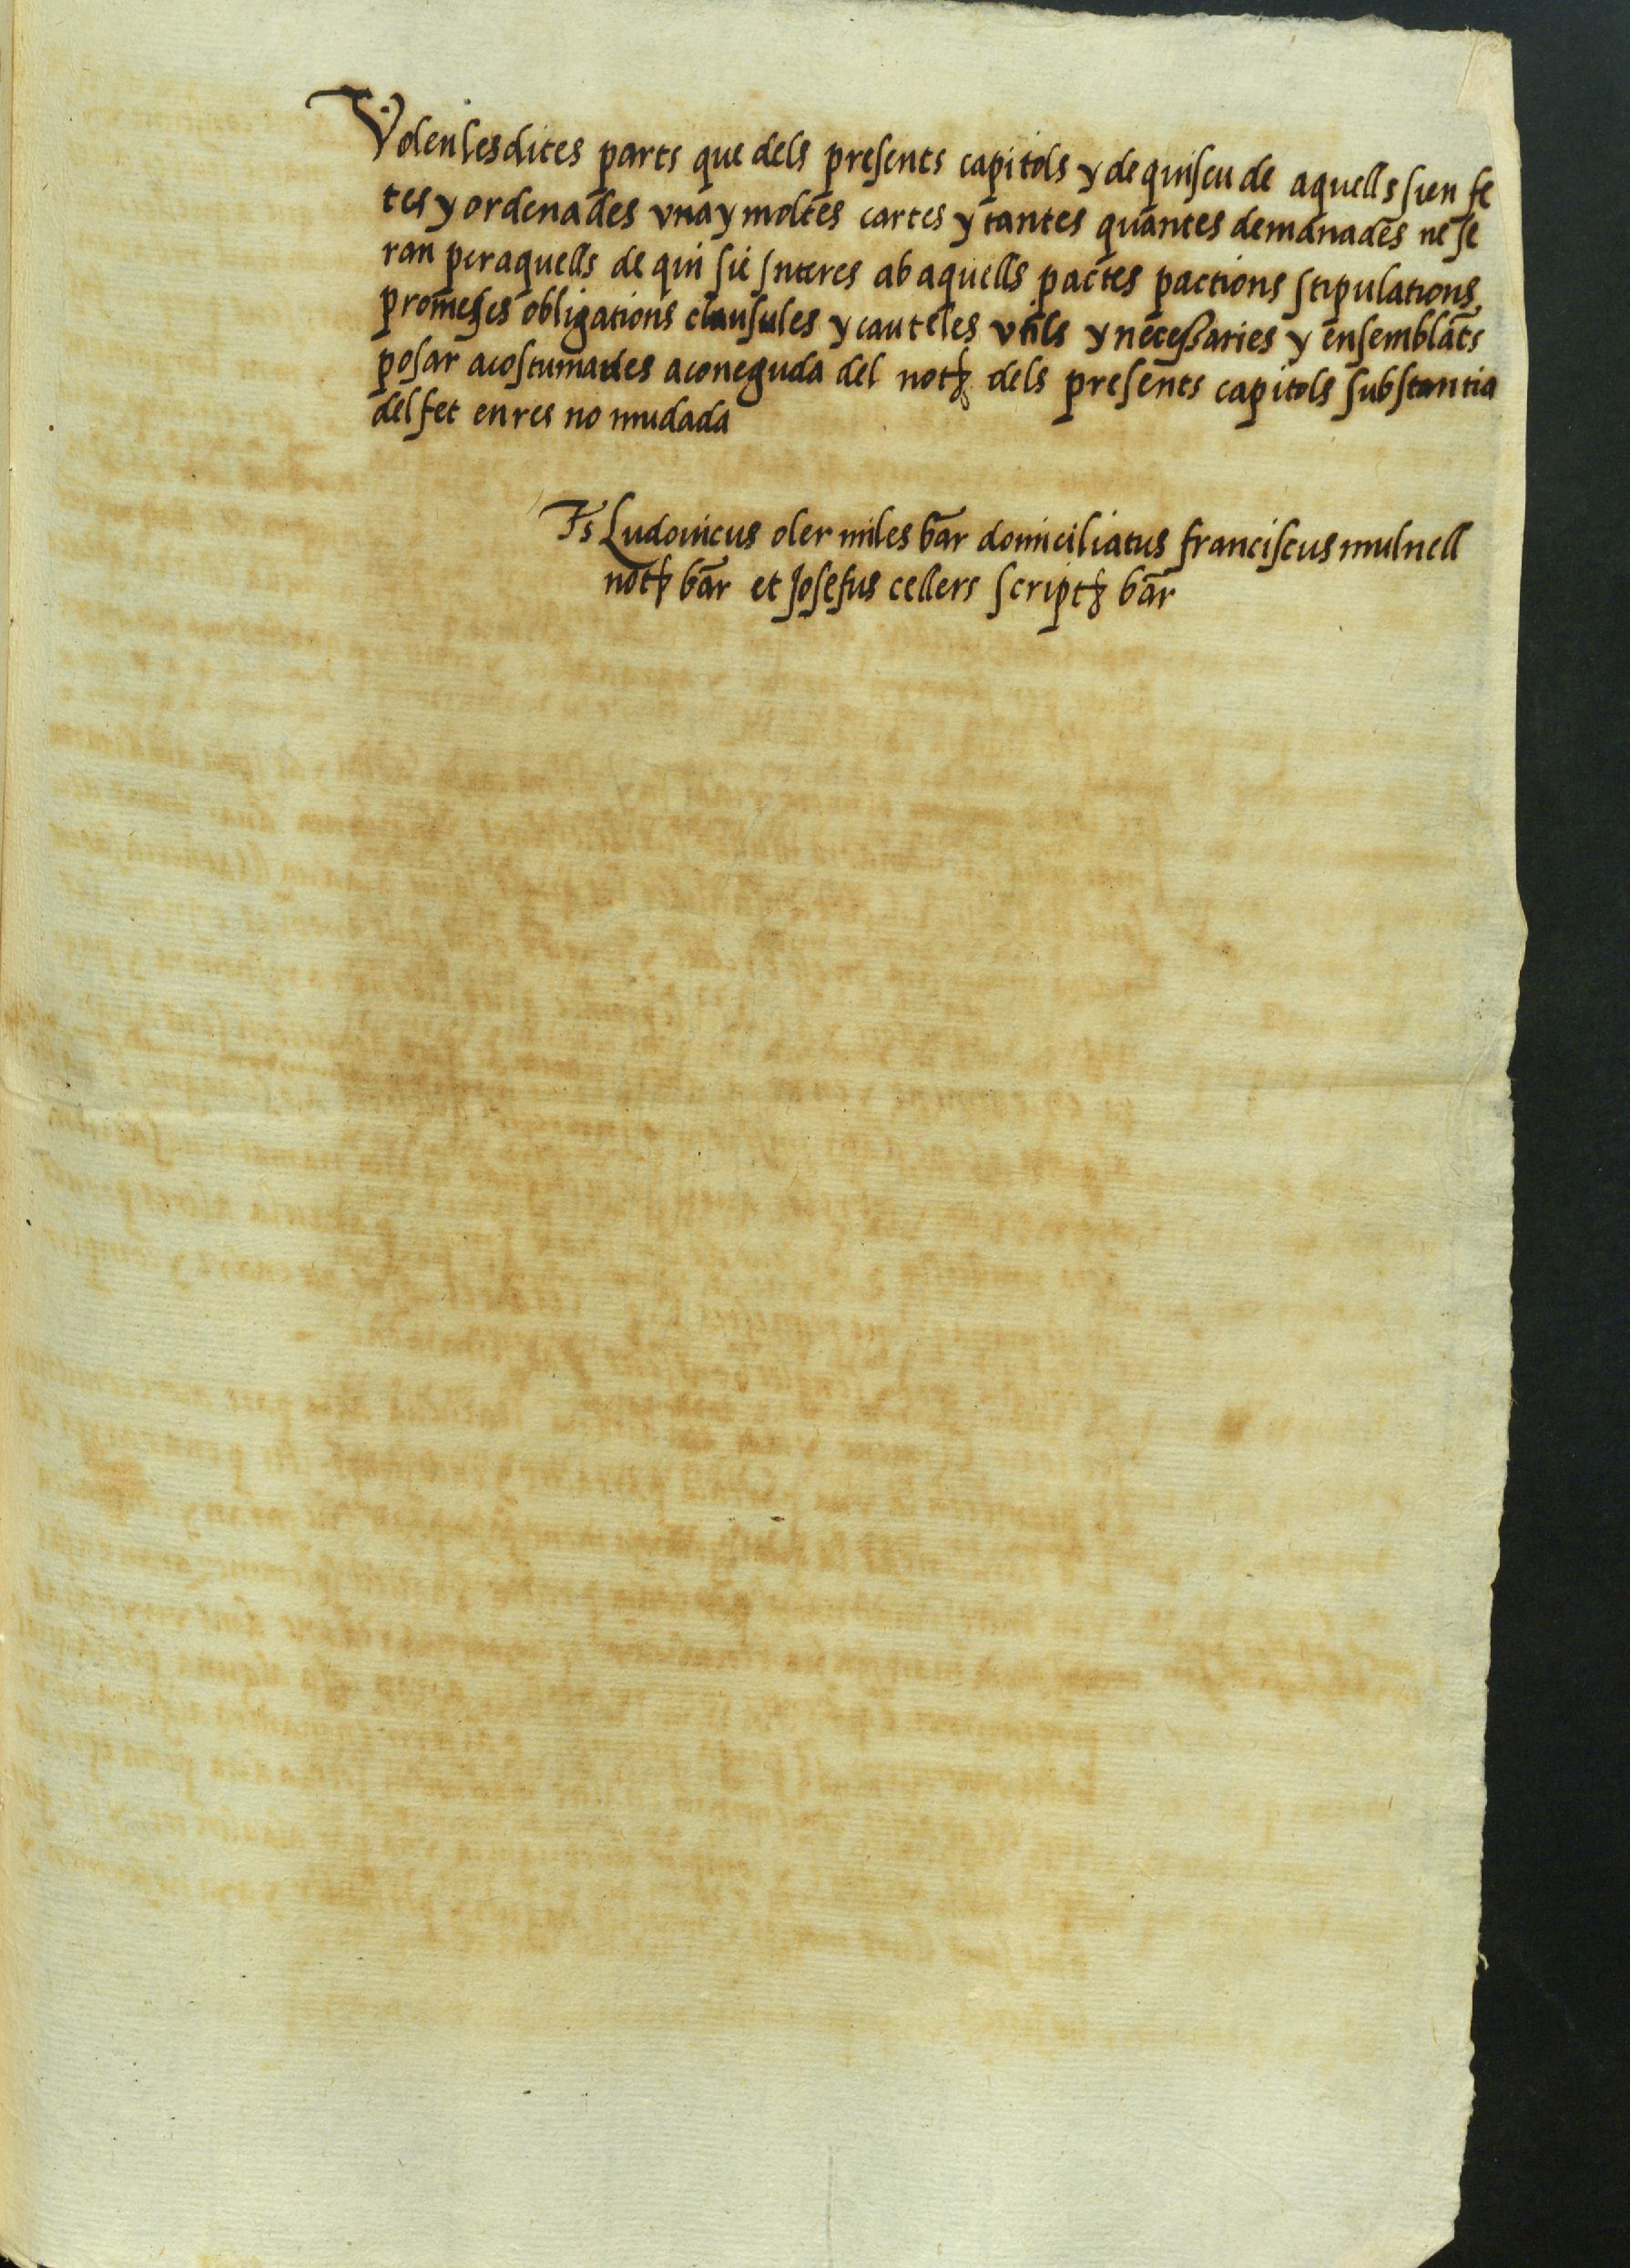 Volen les dites parts que dels presents capitols y de quiscu de aquells sien fe
tes y ordenades vna y moltes cartes y tantes quantes demanades ne se
ran per aquells de qui sie interes ab aquells pactes pactions stipulations
promeses obligations clausules y cauteles vtils y necessaries y en semblāts
posar acostumades a coneguda del notȝ dels presents capitols substantia
del fet en res no mudada
Ts Ludouicus oler miles bar domiciliatus franciscus mulnell
notȝ bar et Josefus cellers scriptȝ bar